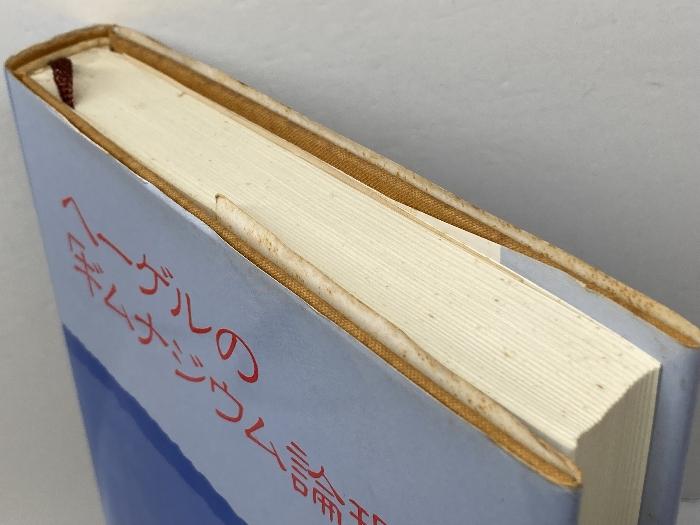 ヘーゲルの
ギムナジウム論理